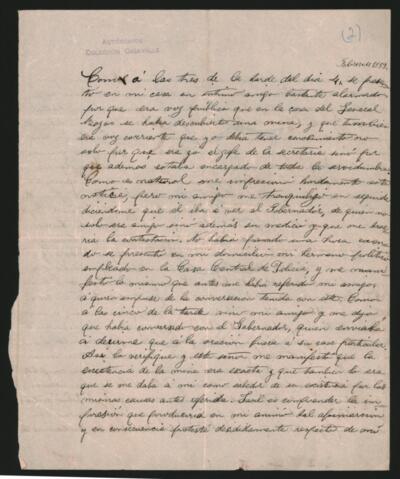 AUTÓGRAFOS
COLECCIÓN CASAVALLE
(2)
Febrero 11 1891.
Como á las tres de la tarde del dia 4, se presen
tó en mi casa un íntimo amigo bastante alarmado
por que era voz pública que en la casa del Gral.
se habia descubierto una mina, y que tambien
era voz corriente que yo debia tener conocimiento no
solo por que era yo el jefe de la secretaria sinó por
que ademas estaba encargado de toda la servidumbre.
Como es natural me impresionó hondamente esta
noticia, pero mi amigo me tranquilizó en seguida
diciéndome que él iba á ver al Gobernador, de quien no
solo era amigo sinó ademas su médico y que me trae
ria la contestacion. No habia pasado una hora cuan
do se presentó en mi domicilio mi hermano político
empleado en la Casa Central de Policia, y me mani
festó lo mismo que antes me habia referido mi amigo
á quien impuse de la conversacion tenida con este. Como
á las cinco de la tarde vino mi amigo y me dijo
que habia conversado con el Gobernador, quien enviaba
á decirme que á la oracion fuese á su casa particular.
Asi lo verifiqué y este señor me manifestó que la
existencia de la mina era exacta y que tambien lo era
que se me daba á mi como sabedor de su existencia por las
mismas causas antes referidas. Facil es comprender la im
presion que produciria en mi ánimo tal afirmacion
y en consecuencia protesté decididamente respecto de mi